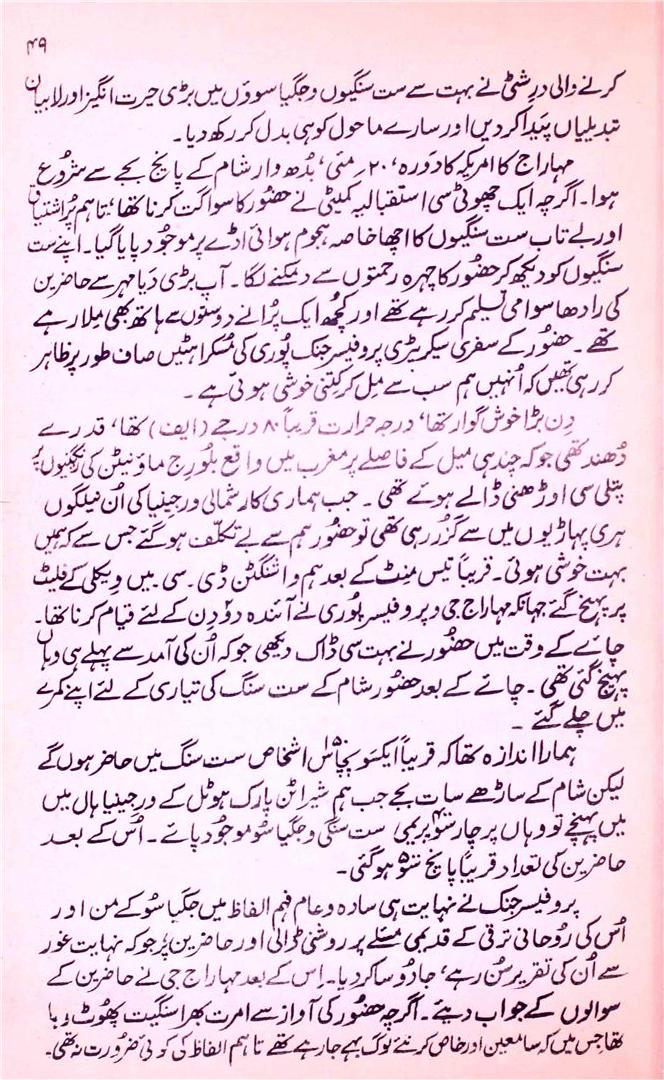 ۴۹
کرنے والی درِشٹی نے بہت سے ست سنگیوں و جگیاسوؤں میں بڑی حیرت انگیز اور لابیان
تبدیلیاں پیدا کر دیں اور سارے ماحول کو ہی بدل کر رکھ دیا۔
مہاراج کا امریکہ کا دَورہ، ۲۰ مئی، بُدھ وار شام کے پانچ بجے سے شروع
ہوا۔ اگرچہ ایک چھوٹی سی استقبالیہ کمیٹی نے حضُور کا سواگت کرنا تھا، تاہم پُراشتیاق
اور بے تاب ست سنگیوں کا اچھا خاصہ ہجوم ہوائی اڈے پر موجُود پایا گیا۔ اپنے ست
سنگیوں کو دیکھ کر حضُور کا چہرہ رحمتوں سے دمکنے لگا۔ آپ بڑی دَیا مہر سے حاضرین
کی رادھا سوامی تسلیم کر رہے تھے اور کچھ ایک پرانے دوستوں سے ہاتھ بھی مِلا رہے
تھے۔ حضُور کے سفری سیکریٹری پروفیسر جنک پُوری کی مُسکراہٹیں صاف طور پر ظاہر
کر رہی تھیں کہ اُنہیں ہم سب سے مِل کر کِتنی خوشی ہوئی ہے۔
دِن بڑا خوش گوار تھا، درجہ حرارت قریباً ۸۰ درجے (ایف) تھا، قدرے
دُھند تھی جو کہ چند ہی میل کے فاصلے پر مغرب میں واقع بلُورِج ماؤنٹین کی رنگینیوں پر
پتلی سی اوڑھنی ڈالے ہوئے تھی۔ جب ہماری کار شمالی ورجینیا کی اُن نیلگوں
ہری پہاڑیوں میں سے گزُر رہی تھی تو حضُور ہم سے بے تکلّف ہو گئے جس سے کہ ہمیں
بہت خوشی ہوئی۔ قریباً تیس مِنٹ کے بعد ہم واشنگٹن ڈی۔ سی۔ میں ویکلی کے فلیٹ
پر پہنچ گئے جہاں کہ مہاراج جی و پروفیسر پُوری نے آئندہ دو دِن کے لئے قیام کرنا تھا۔
چائے کے وقت میں حضُور نے بہت سی ڈاک دیکھی جو کہ اُن کی آمد سے پہلے ہی وہاں
پہنچ گئی تھی۔ چائے کے بعد حضُور شام کے ست سنگ کی تیاری کے لئے اپنے کمرے
میں چلے گئے۔
ہمارا اندازہ تھا کہ قریباً ایکسو پچاس ۱۵۰ اشخاص ست سنگ میں حاضر ہوں گے
لیکن شام کے ساڑھے سات بجے جب ہم شیراٹن پارک ہوٹل کے ورجینیا ہال میں
میں پہنچے تو وہاں پر چار سَو ۴۰۰ پریمی ست سنگی و جگیاسُو موجُود پائے۔ اُس کے بعد
حاضرین کی تعداد قریباً پانچ سَو ۵۰۰ ہو گئی۔
پروفیسر جنک نے نہایت ہی سادہ و عام فہم الفاظ میں جگیاسُو کے من اور
اُس کی رُوحانی ترقی کے قدیمی مسئلے پر روشنی ڈالی اور حاضرین پر جو کہ نہایت غور
سے اُن کی تقریر سُن رہے، جادُو سا کر دیا۔ اِس کے بعد مہاراج جی نے حاضرین کے
سوالوں کے جواب دیئے۔ اگرچہ حضُور کی آواز سے امرت بھرا سنگیت پھُوٹ رہا
تھا جس میں کہ سامعین اور خاص کر نئے لوگ بہے جا رہے تھے تاہم الفاظ کی کوئی ضرورت نہ تھی۔